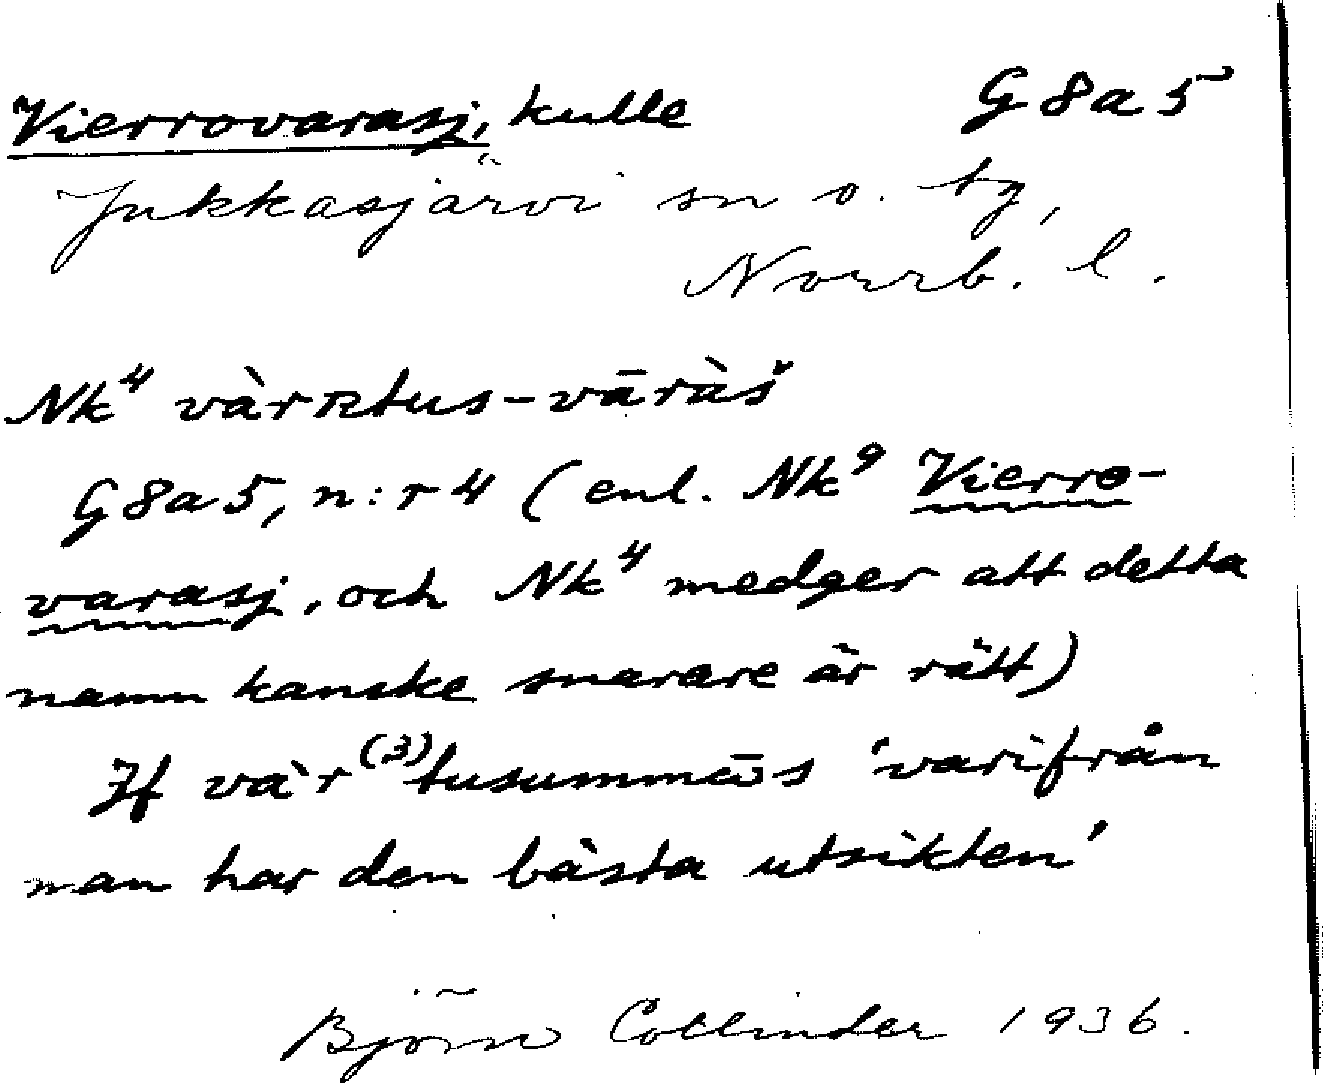 Vierrovarasj, kulle G8a5
Jukkasjärvi sn o. tg,
Norrb. l.
Nk⁴ vàrʀtus-vāràš
G8a5, n:r 4 (enl. Nk⁹ Vierro-
varasj, och Nk⁴ medger att detta
namn kanske snarare är rätt)
Jf và'r⁽³⁾tusummās 'varifrån
man har den bästa utsikten'
Björn Collinder 1936.